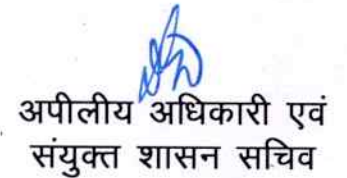 अपीलीय अधिकारी एवं
संयुक्त शासन सचिव